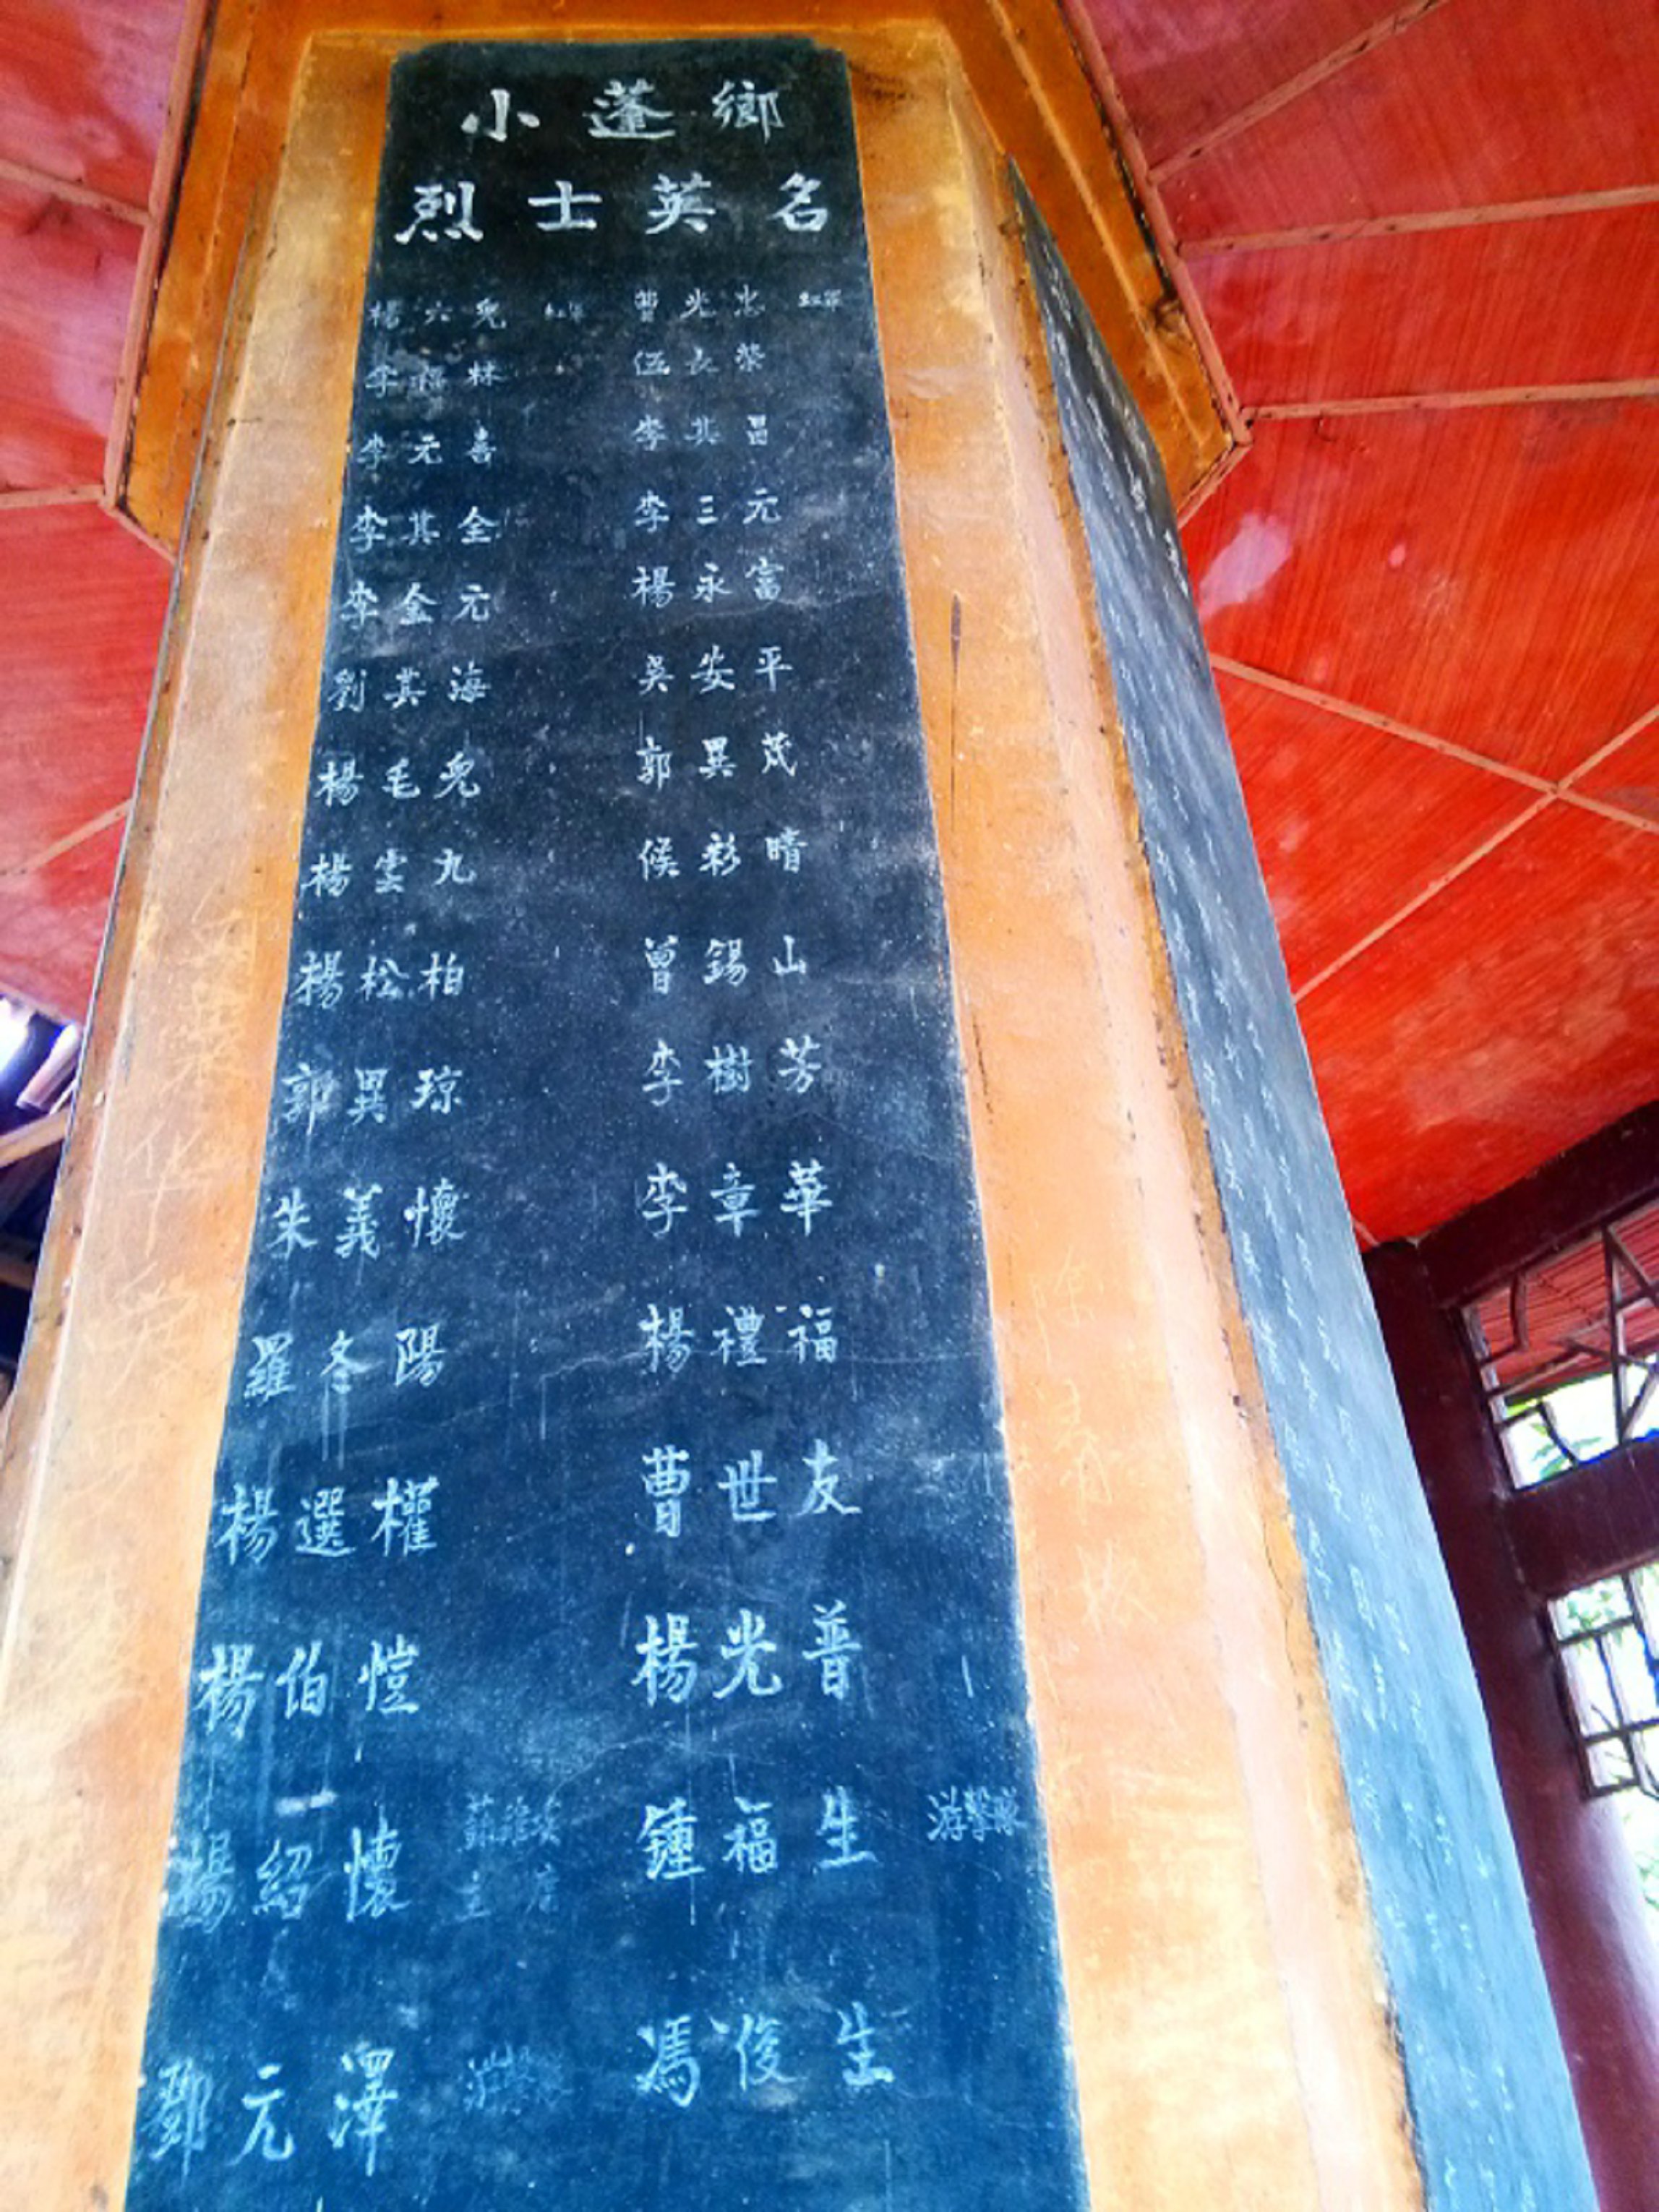 小蓬鄉
烈士英名
楊六兒 曹光忠 紅軍
李福林 伍長榮
李元喜 李其昌
李其全 李三元
李金元 楊永富
劉其海 吳安平
楊毛兒 郭異茂
楊雲九 候彩晴
楊松柏 曾錫山
郭異琼 李樹芳
朱義懷 李章華
羅冬陽 楊禮福
楊選權 曹世友
楊伯愷 楊光普
楊紹懷 鍾福生 游擊隊
鄧元澤 馮俊生